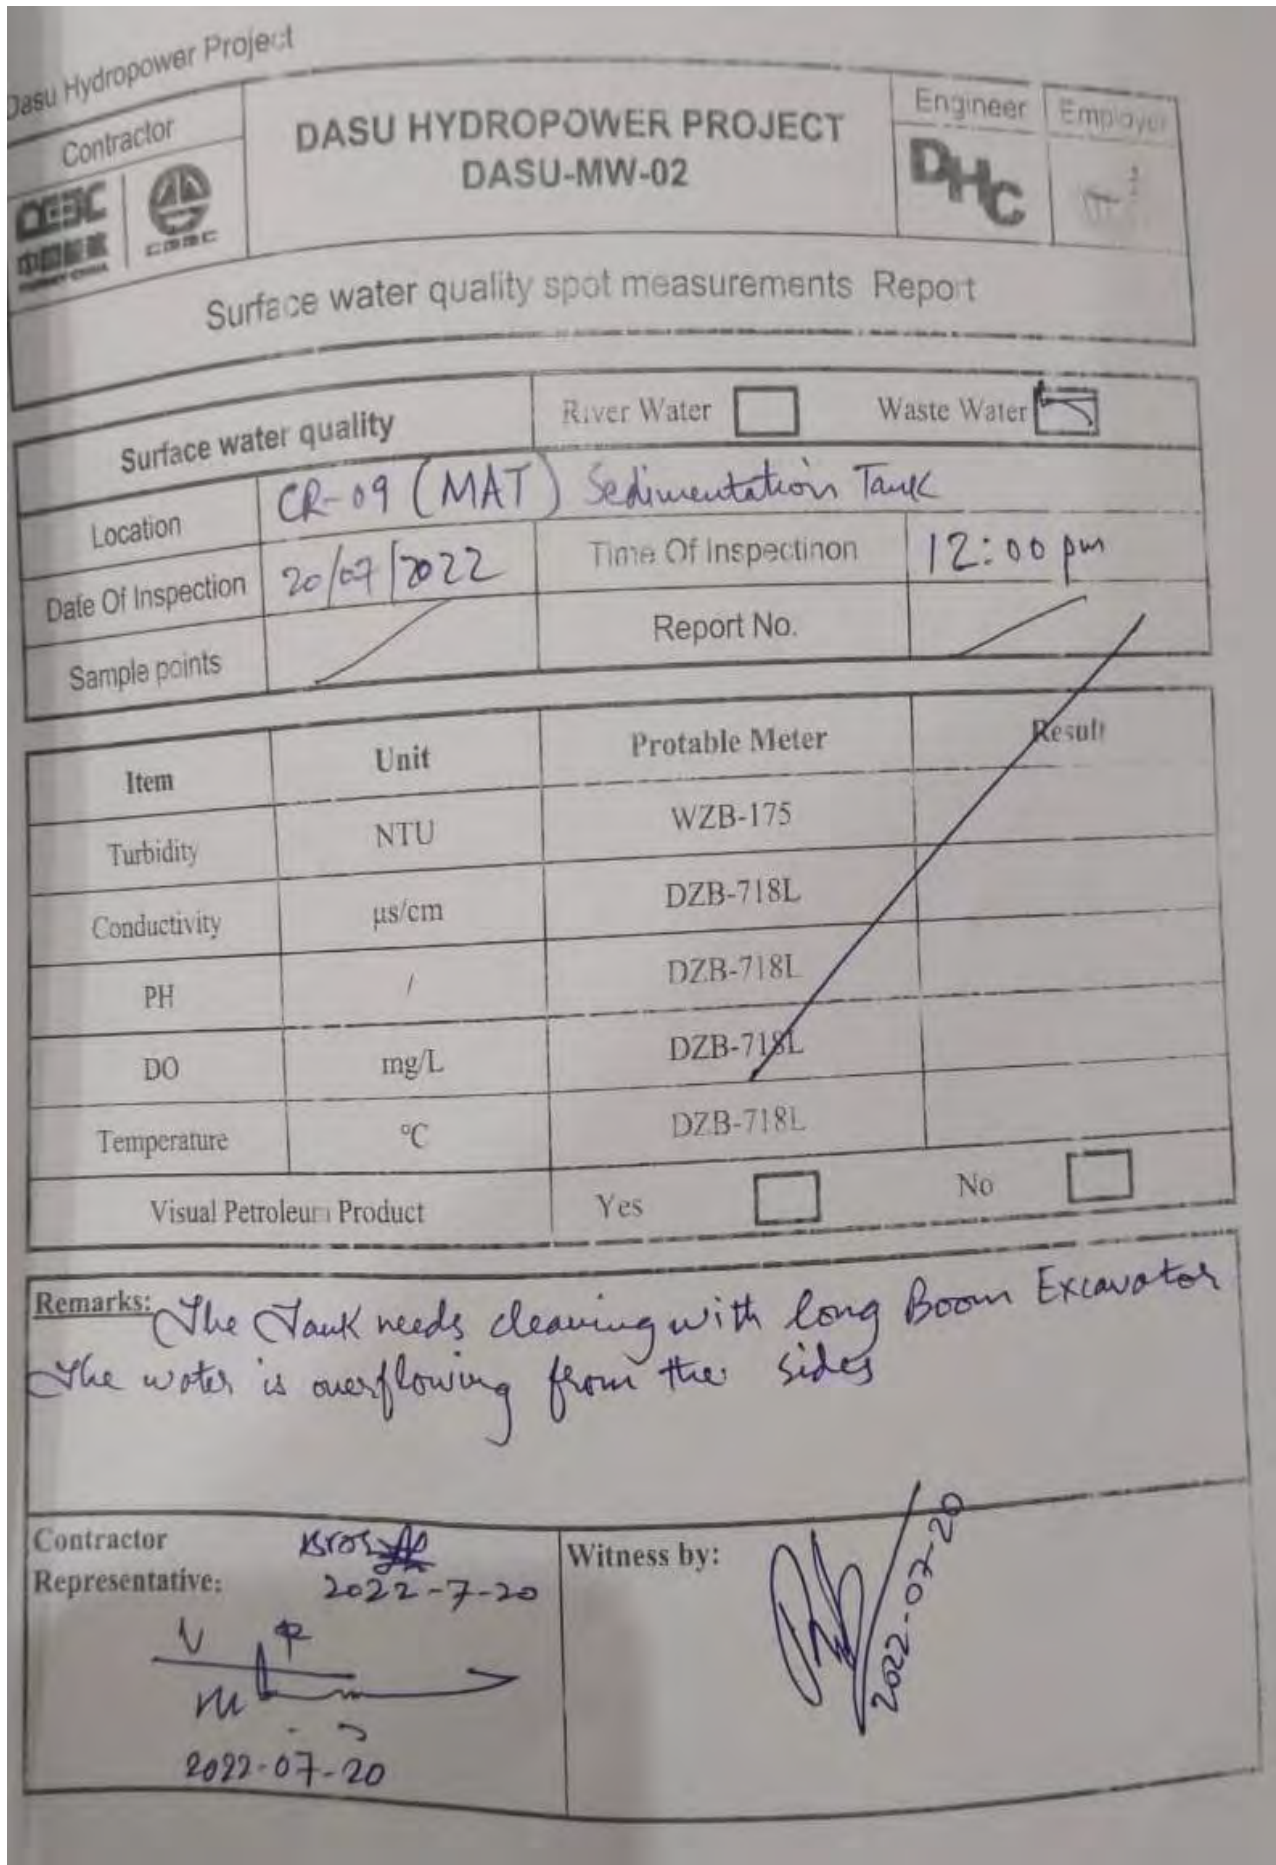 Dasu Hydropower Project
Contractor
DASU HYDROPOWER PROJECT
DASU-MW-02
Engineer
Employer
DHC
CGGC
Surface water quality spot measurements Report
Surface water quality
River Water
Waste Water
Location
CR-09 (MAT) Sedimentation Tank
Date Of Inspection
20/07/2022
Time Of Inspectinon
12:00 pm
Sample points
Report No.
Item Unit Protable Meter Result
Turbidity NTU WZB-175
Conductivity µs/cm DZB-718L
PH / DZB-718L
DO mg/L DZB-718L
Temperature °C DZB-718L
Visual Petroleum Product Yes No
Remarks: The Tank needs cleaning with long Boom Excavator
The water is overflowing from the sides
Contractor
Representative:
2022-7-20
2022-07-20
Witness by:
2022-07-20